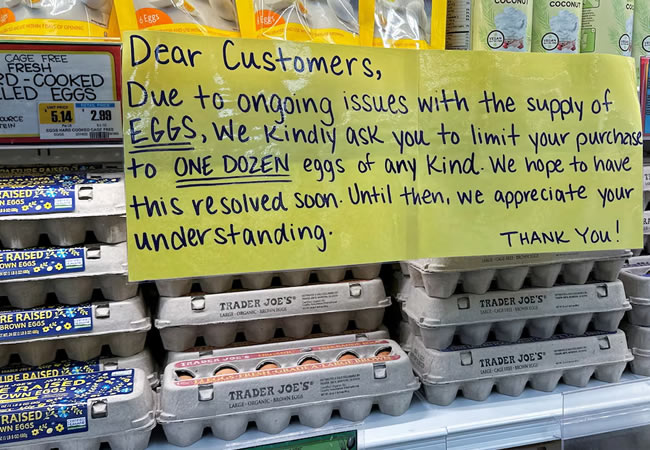 6 EGGS
6 EGGS
COCONUT
COCONUT
CAGE FREE
FRESH
RD-COOKED
LED EGGS
5.14
2.99
EGGS HARD COOKED CAGE FREE
Dear Customers,
Due to ongoing issues with the supply of
EGGS, We Kindly ask you to limit your purchase
to ONE DOZEN eggs of any Kind. We hope to have
this resolved soon. Until then, we appreciate your
understanding.
THANK YOU!
RAISED
N EGGS
RE RAISED
OWN EGGS
RE RAISED
BROWN EGGS
URE RAISED
OWN EGGS
RAISED
WN EGGS
TRADER JOE'S
LARGE · ORGANIC · BROWN EGGS
TRADER JOE'S
TRADER JOE'S
LARGE · ORGANIC · BROWN EGGS
TRADER JOE'S
TRADER JOE'S